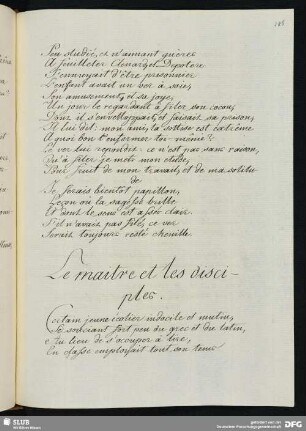 Peu studié, et n'aimant guères
A feuilleter Clenard et Depotere
S'ennuyait d'être prisonnier
L'enfant avait un ver à soie,
Son amusement, et sa joye.
Un jour le regardant à filer son cocon,
Dont il s'enveloppait, et faisait sa prison,
Il lui dit: mon ami, ta sottise est extrême
A quoi bon t'enfermer toi-même?
Le ver lui repondit: ce n'est pas sans raison,
Qu'à filer je mets mon etude,
Pour fruit de mon travail, et de ma
de
Je serais bientot papillon,
Leçon où la sagesse brille
Et dont le sens est assez clair.
S'il n'avait pas filé, ce ver
Serait toujours resté chenille.
Le maitre et les disci-
ples.
Certain jeune ecolier indocile et mutin,
Se souciant fort peu du grec et du latin,
Au lieu de s'occuper à lire,
En classe employait tout son tems
SLUB
DFG